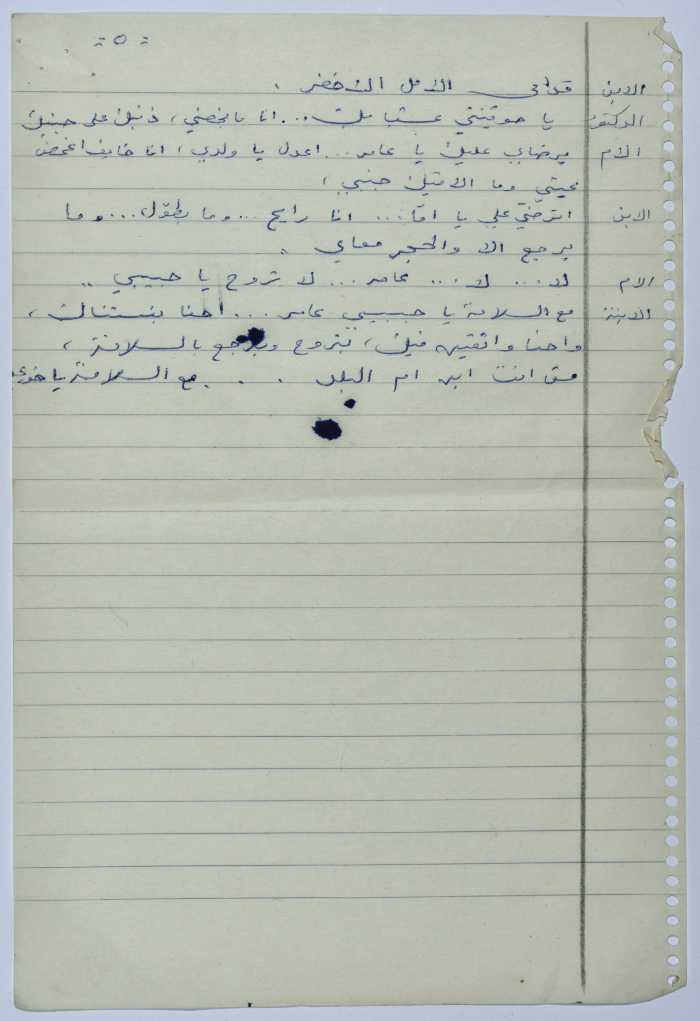 - ٥ -
الابن قدامي الأمل الأخضر .
الدكتور يا حوينتي عشبابك ... انا ما يخصني ، ذنبك على جنبك
الام يرضى عليك يا عامر ... اعدل يا ولدي ، انا خايف اغمض
عيني وما الاقيك جنبي ،
الابن اترضّي علي يا امّا ... انا رايح ... وما بطوّل ... وما
برجع الا والحجر معاي .
الام لا ... لا ... عامر ... لا تروح يا حبيبي ..
الابنة مع السلامة يا حبيبي عامر ... احنا بنستناك ،
واحنا واثقين فيك ، بتروح وبترجع بالسلامة ،
مش انت ابن ام البلد . . . مع السلامة يا خوي